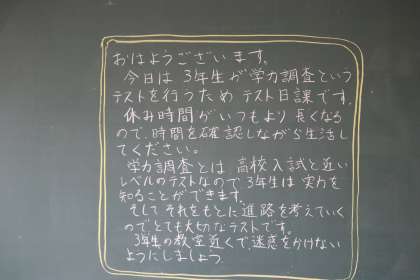 おはようございます。
今日は3年生が学力調査という
テストを行うためテスト日課です。
休み時間がいつもより長くなる
ので、時間を確認しながら生活し
てください。
学力調査とは高校入試と近い
レベルのテストなので3年生は実力を
知ることができます。
そしてそれをもとに進路を考えていく
のでとても大切なテストです。
3年生の教室近くで、迷惑をかけない
ようにしましょう